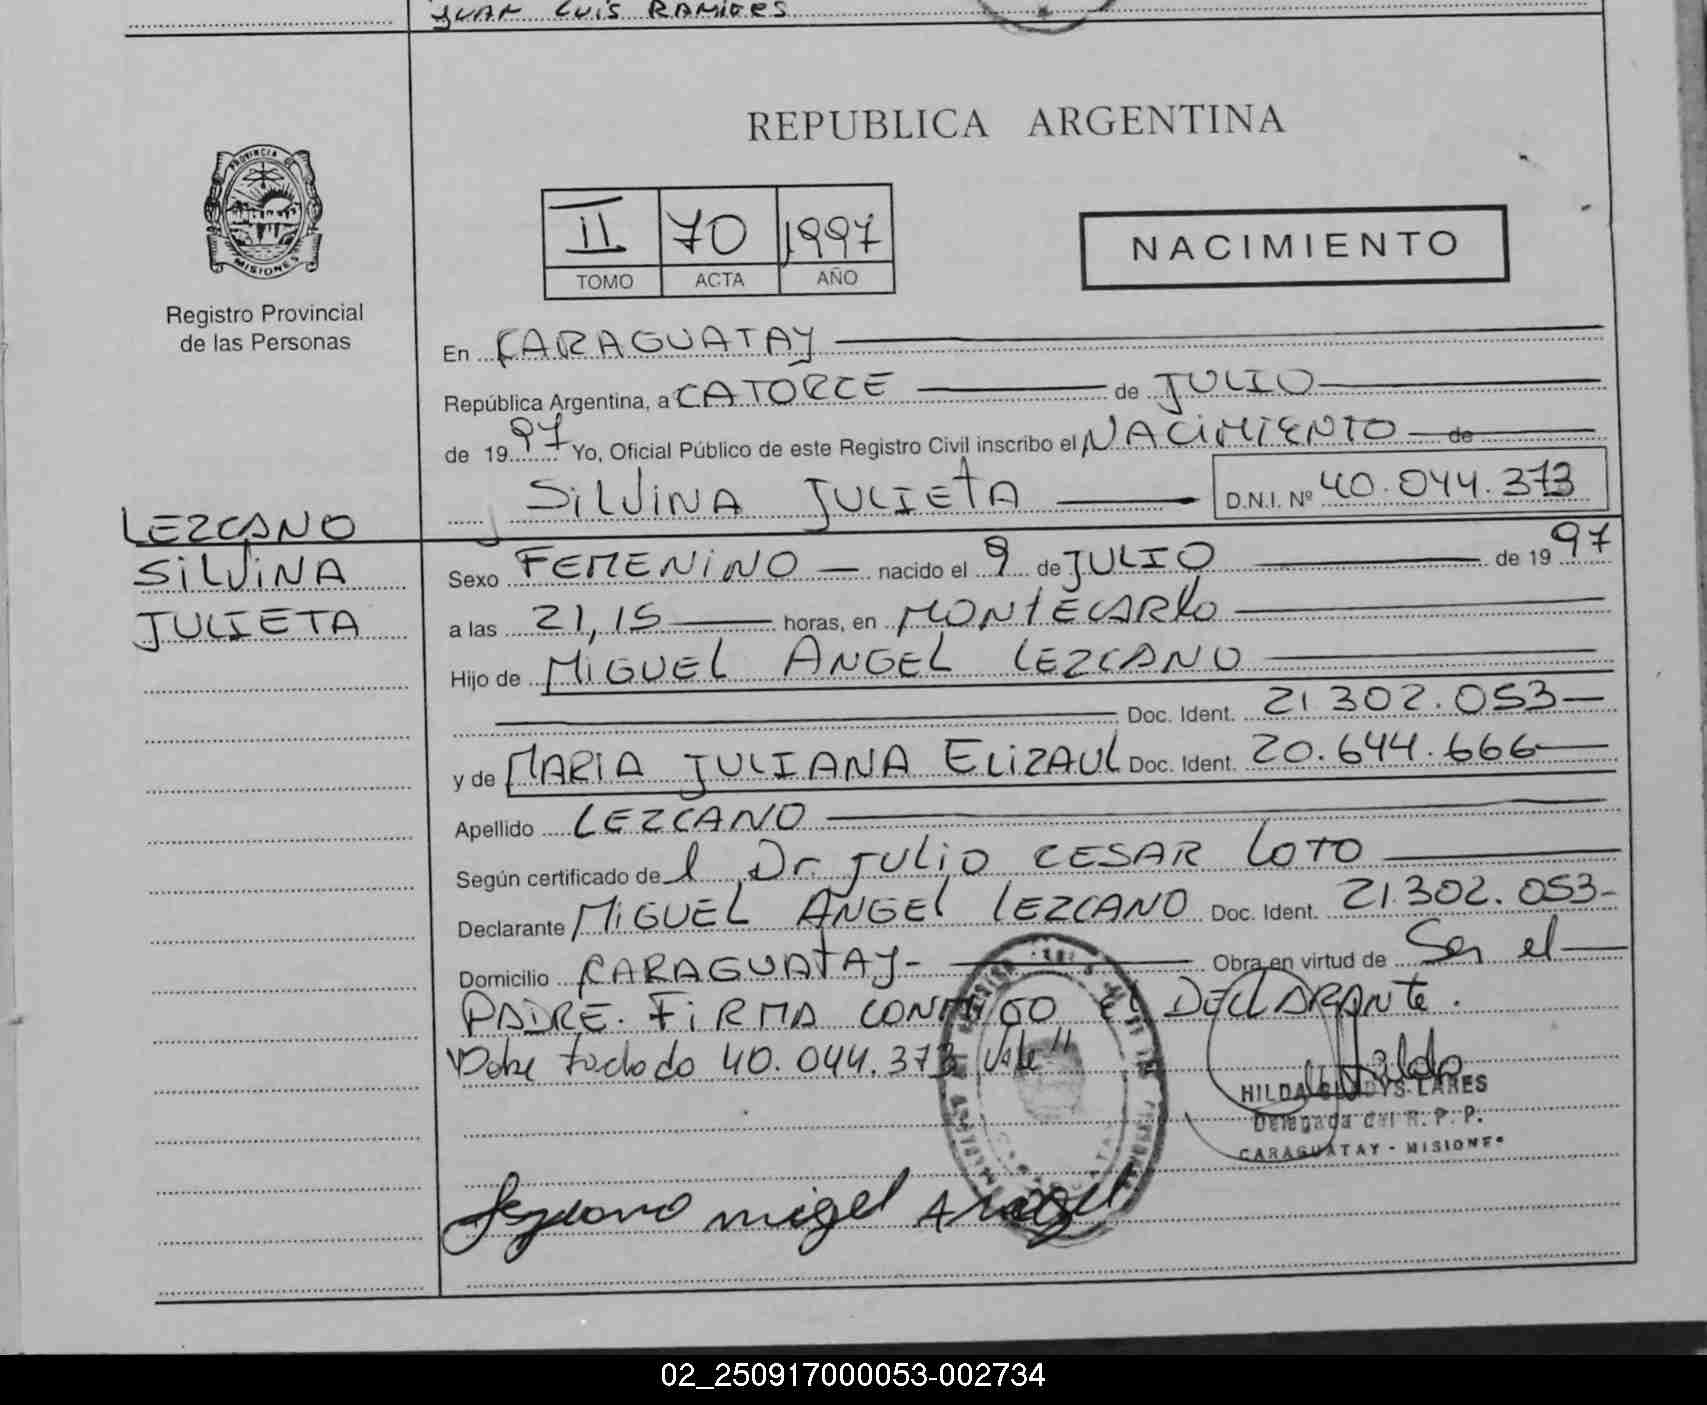 JUAN LUIS RAMIRES
PROVINCIA DE
MISIONES
Registro Provincial
de las Personas
REPUBLICA ARGENTINA
II 70 1997
TOMO ACTA AÑO
NACIMIENTO
En CARAGUATAY
República Argentina, a CATORCE de JULIO
de 1997 Yo, Oficial Público de este Registro Civil inscribo el NACIMIENTO de
SILVINA JULIETA D.N.I. Nº 40.044.373
LEZCANO
SILVINA
JULIETA
Sexo FEMENINO nacido el 9 de JULIO de 1997
a las 21,15 horas, en MONTECARLO
Hijo de MIGUEL ANGEL LEZCANO
Doc. Ident. 21.302.053
y de MARIA JULIANA ELIZAUL Doc. Ident. 20.644.666
Apellido LEZCANO
Según certificado del Dr. JULIO CESAR LOTO
Declarante MIGUEL ANGEL LEZCANO Doc. Ident. 21.302.053
Domicilio CARAGUATAY- Obra en virtud de Ser el
PADRE. FIRMA CONMIGO EL DECLARANTE.
Sobre 40.044.373 Vale"
HILDA GLADYS LARES
Delegada del R. P. P.
CARAGUATAY - MISIONES
Lezcano migel Angel
02_250917000053-002734